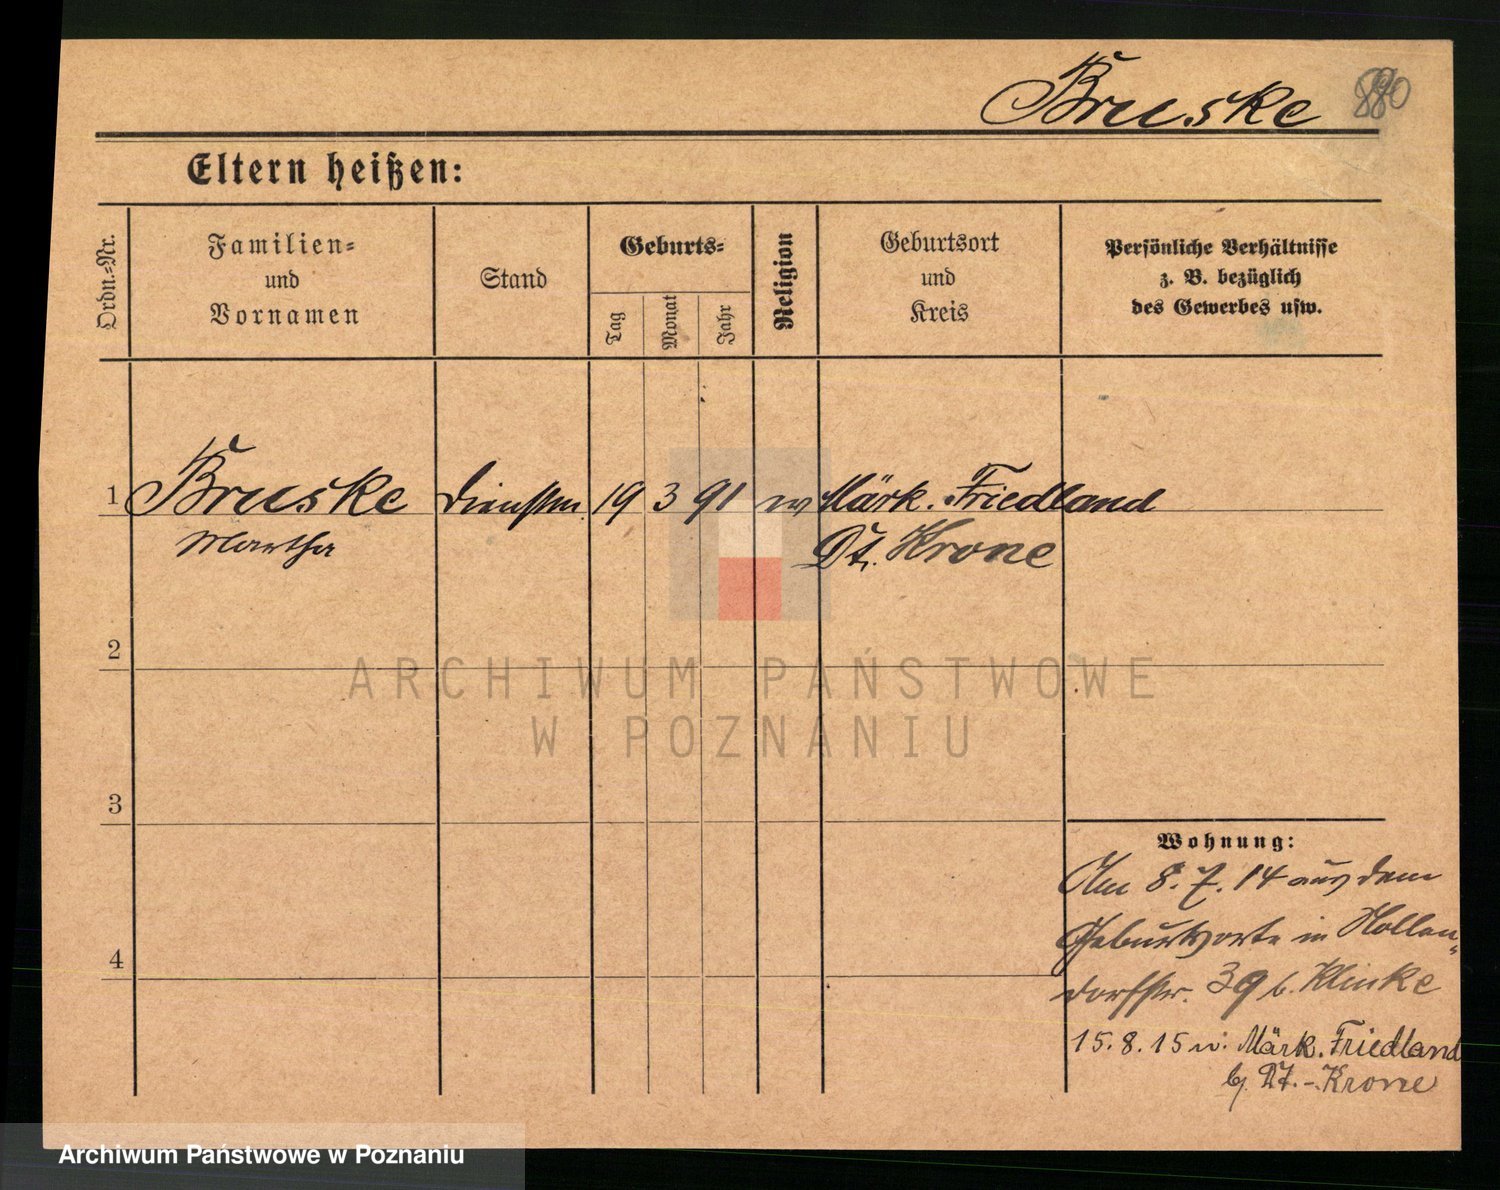 Bruske 880
Eltern heißen:
Ordn.=Nr.
Familien=
und
Vornamen
Stand
Geburts=
Tag
Monat
Jahr
Religion
Geburtsort
und
Kreis
Persönliche Verhältnisse
z. B. bezüglich
des Gewerbes usw.
1 Bruske Dienstm. 19 3 91 ev Märk. Friedland
Martha Dt. Krone
2
3
4
Wohnung:
Am 8. 7. 14 aus dem
Geburtsorte in Hollen=
dorfstr. 39 b. Klinke
15. 8. 15 n. Märk. Friedland
b. Dt.-Krone
ARCHIWUM PAŃSTWOWE
W POZNANIU
Archiwum Państwowe w Poznaniu